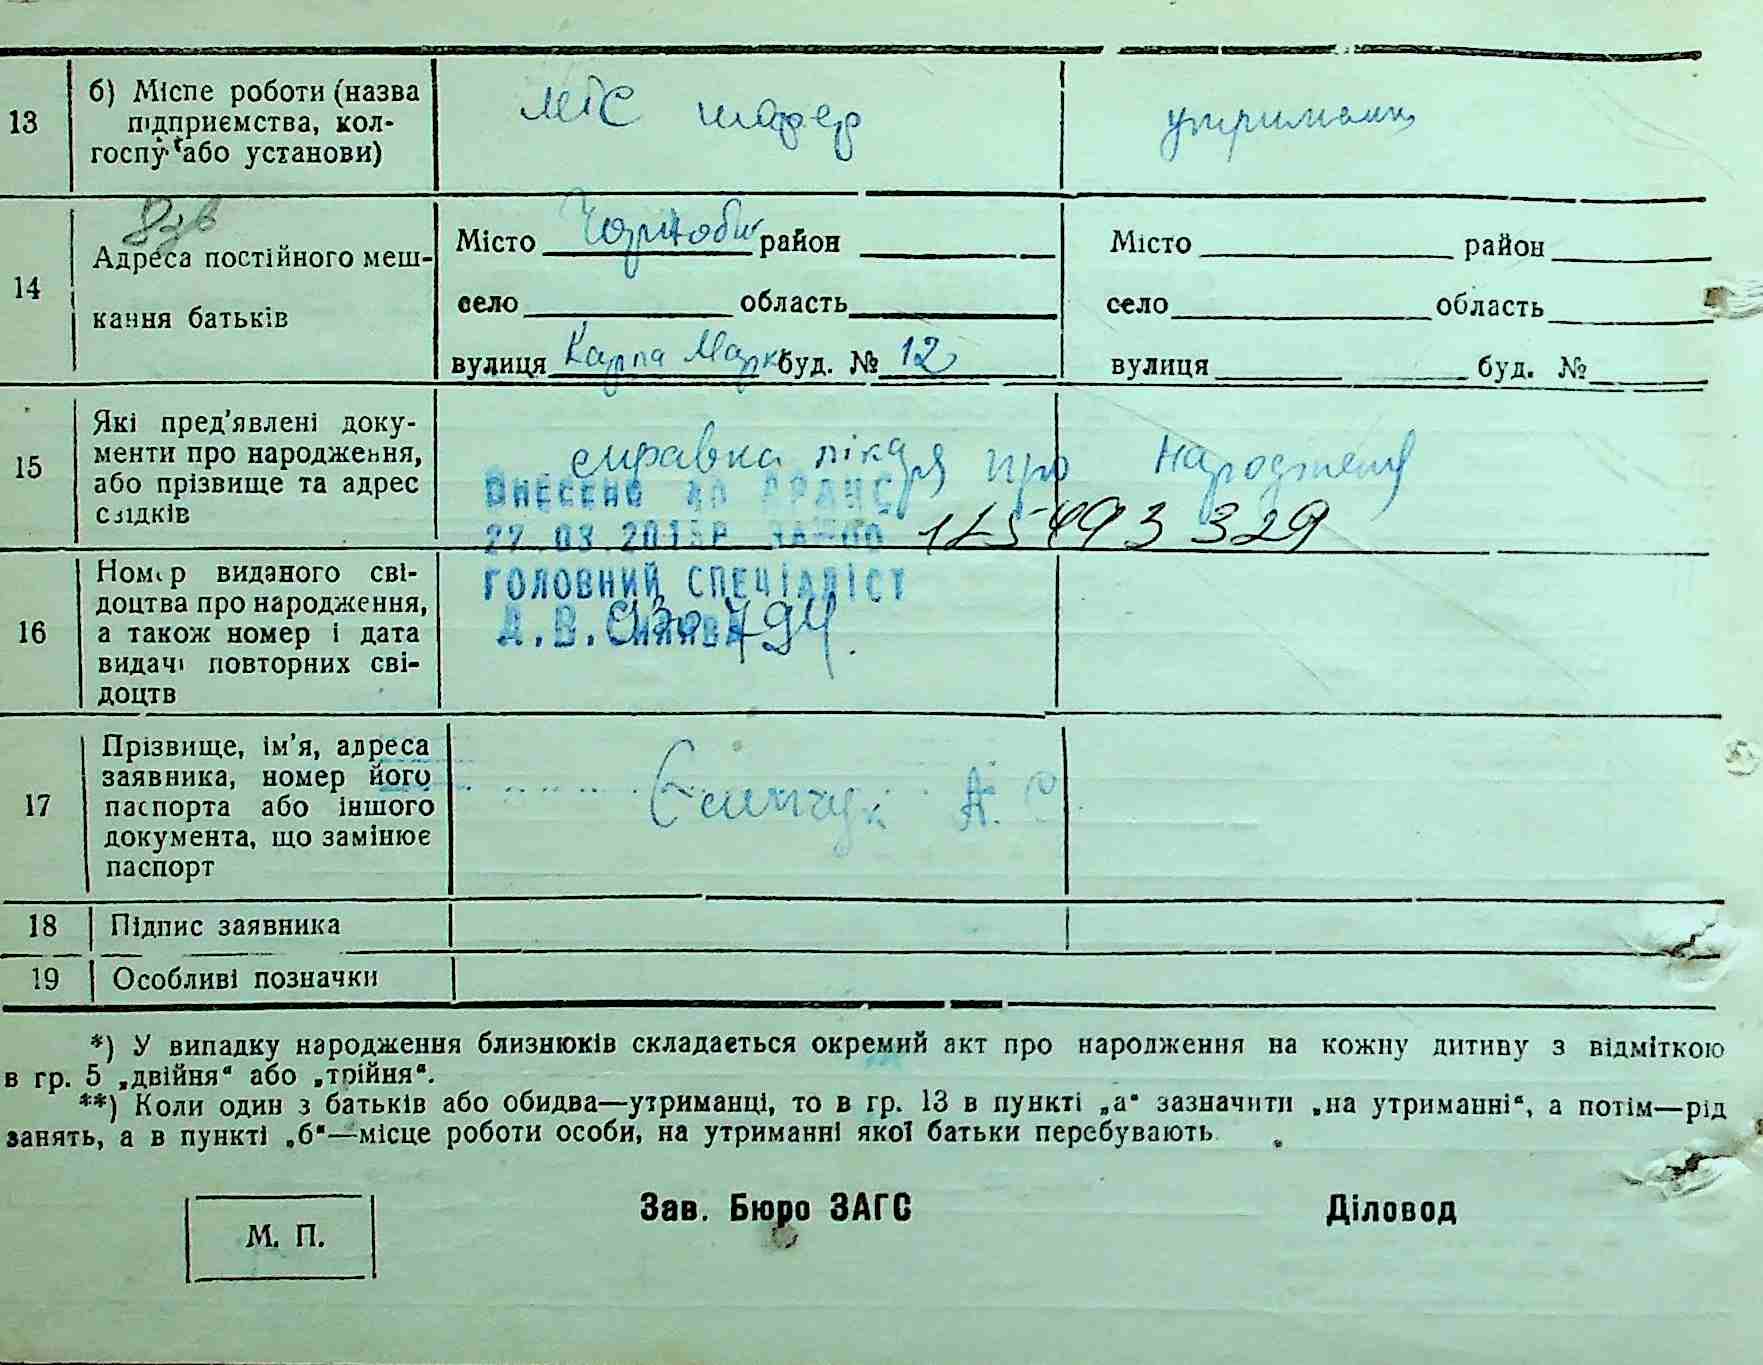 13
б) Місце роботи (назва
підприємства, кол-
госпу або установи)
МТС шофер
утриманка
14
Адреса постійного меш-
кання батьків
Місто Чорноби район
село область
вулиця Карла Маркса буд. № 12
Місто район
село область
вулиця буд. №
15
Які пред'явлені доку-
менти про народження,
або прізвище та адрес
свідків
справка лікаря про народження
ВНЕСЕНО ДО ДРАЦС
27.03.2015Р ЗА №00 125493329
16
Номер виданого сві-
доцтва про народження,
а також номер і дата
видачі повторних сві-
доцтв
ГОЛОВНИЙ СПЕЦІАЛІСТ
Д.В.
17
Прізвище, ім'я, адреса
заявника, номер його
паспорта або іншого
документа, що замінює
паспорт
А. С.
18
Підпис заявника
19
Особливі позначки
*) У випадку народження близнюків складається окремий акт про народження на кожну дитину з відміткою
в гр. 5 „двійня“ або „трійня“.
**) Коли один з батьків або обидва—утриманці, то в гр. 13 в пункті „а“ зазначити „на утриманні“, а потім—рід
занять, а в пункті „б“—місце роботи особи, на утриманні якої батьки перебувають.
М. П.
Зав. Бюро ЗАГС
Діловод